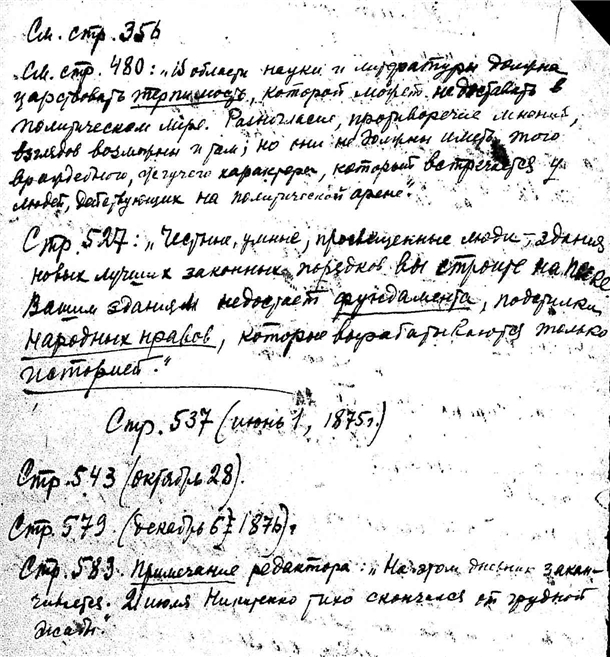 См. стр. 356
См. стр. 480: „В области науки и литературы должна
царствовать терпимость, которой может недоставать в
политическом мире. Разногласие, противоречие мнений,
взглядов возможны и там; но они не должны иметь того
враждебного, жгучего характера, который встречается у
людей, действующих на политической арене".
Стр. 527: „Честные, умные, просвещенные люди, здания
новых лучших законных порядков вы строите на песке
Вашим зданиям недостает фундамента, подстилки
народных нравов, которые вырабатываются только
историей."
Стр. 537 (июнь 1, 1875г.)
Стр. 543 (октябрь 28).
Стр. 579. (декабрь 1876).
Стр. 583. Примечание редактора: „На этом дневник закан-
чивается. 21 июля Никитенко тихо скончался от грудной
жабы".